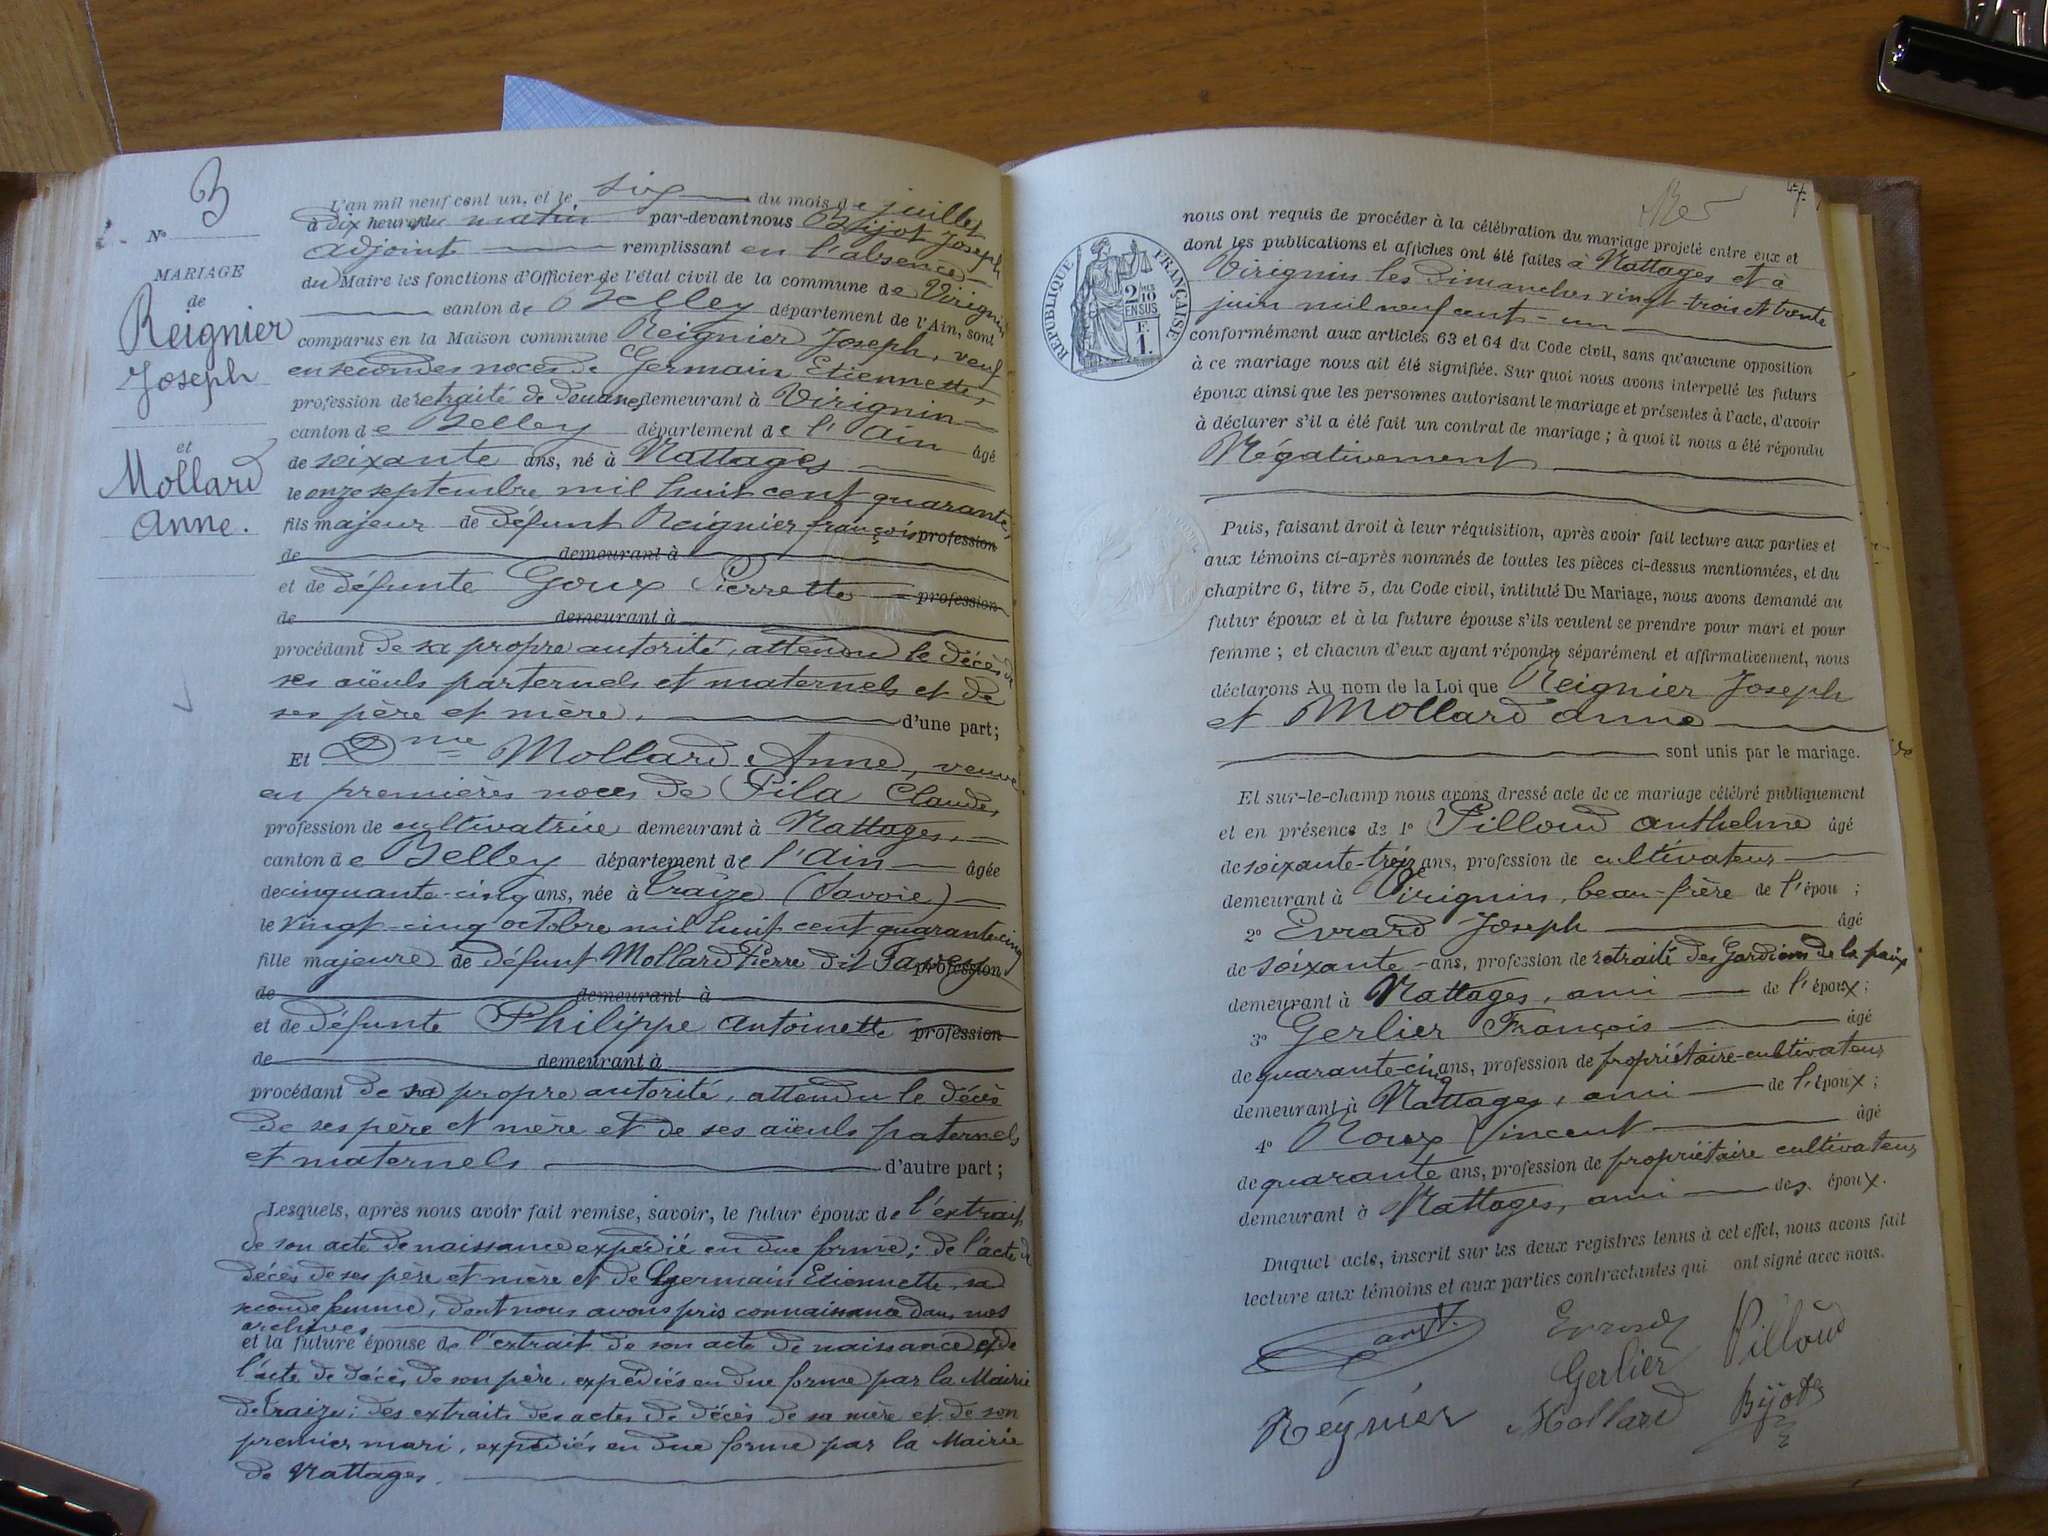 B
N°
MARIAGE
de
Reignier
Joseph
et
Mollard
Anne.
L'an mil neuf cent un, et le six du mois de juillet
à dix heures du matin par-devant nous Bijot Joseph
adjoint remplissant en l'absence
du Maire les fonctions d'Officier de l'état civil de la commune de Virignin
canton de Belley département de l'Ain, sont
comparus en la Maison commune Reignier Joseph, veuf
en secondes noces de Germain Etiennette,
profession de retraité de douanes, demeurant à Virignin
canton de Belley département de l'Ain âgé
de soixante ans, né à Nattages
le onze septembre mil huit cent quarante,
fils majeur de défunt Reignier françois profession
de demeurant à
et de défunte Goux Pierrette profession
de demeurant à
procédant de sa propre autorité, attendu le décès de
ses aïeuls parternels et maternels et de
ses père et mère, d'une part;
Et Dme Mollard Anne, veuve
en premières noces de Pila Claude,
profession de cultivatrice demeurant à Nattages,
canton de Belley département de l'Ain âgée
de cinquante-cinq ans, née à Traize (Savoie)
le vingt-cinq octobre mil huit cent quarante-cinq
fille majeure de défunt Mollard Pierre dit profession
de demeurant à
et de défunte Philippe Antoinette profession
de demeurant à
procédant de sa propre autorité, attendu le décès
de ses père et mère et de ses aïeuls paternels
et maternels d'autre part;
Lesquels, après nous avoir fait remise, savoir, le futur époux de l'extrait
de son acte de naissance expédié en due forme; de l'acte de
décès de ses père et mère et de Germain Etiennette, sa
seconde femme, dont nous avons pris connaissance dans nos
archives
et la future épouse de l'extrait de son acte de naissance et de
l'acte de décès de son père, expédiés en due forme par la Mairie
de Traize; des extraits des actes de décès de sa mère et de son
premier mari, expédiés en due forme par la Mairie
de Nattages.
47
RÉPUBLIQUE FRANÇAISE
2/10
EN SUS
F.
1.
nous ont requis de procéder à la célébration du mariage projeté entre eux et
dont les publications et affiches ont été faites à Nattages et à
Virignin les dimanches vingt-trois et trente
juin mil neuf cent-un
conformément aux articles 63 et 64 du Code civil, sans qu'aucune opposition
à ce mariage nous ait été signifiée. Sur quoi nous avons interpellé les futurs
époux ainsi que les personnes autorisant le mariage et présentes à l'acte, d'avoir
à déclarer s'il a été fait un contrat de mariage; à quoi il nous a été répondu
Négativement
Puis, faisant droit à leur réquisition, après avoir fait lecture aux parties et
aux témoins ci-après nommés de toutes les pièces ci-dessus mentionnées, et du
chapitre 6, titre 5, du Code civil, intitulé Du Mariage, nous avons demandé au
futur époux et à la future épouse s'ils veulent se prendre pour mari et pour
femme; et chacun d'eux ayant répondu séparément et affirmativement, nous
déclarons Au nom de la Loi que Reignier Joseph
et Mollard Anne
sont unis par le mariage.
Et sur-le-champ nous avons dressé acte de ce mariage célébré publiquement
et en présence de 1° Pilloud Anthelme âgé
de soixante-treize ans, profession de cultivateur
demeurant à Virignin, beau-frère de l'épou ;
2° Evrard Joseph âgé
de soixante ans, profession de retraité des Gardiens de la paix
demeurant à Nattages, ami de l'époux;
3° Gerlier François âgé
de quarante-cinq ans, profession de propriétaire-cultivateur
demeurant à Nattages, ami de l'époux;
4° Roux Vincent âgé
de quarante ans, profession de propriétaire cultivateur,
demeurant à Nattages, ami des époux.
Duquel acte, inscrit sur les deux registres tenus à cet effet, nous avons fait
lecture aux témoins et aux parties contractantes qui ont signé avec nous.
Evrard
Pilloud
Gerlier
Régnier
Mollard
Bijot